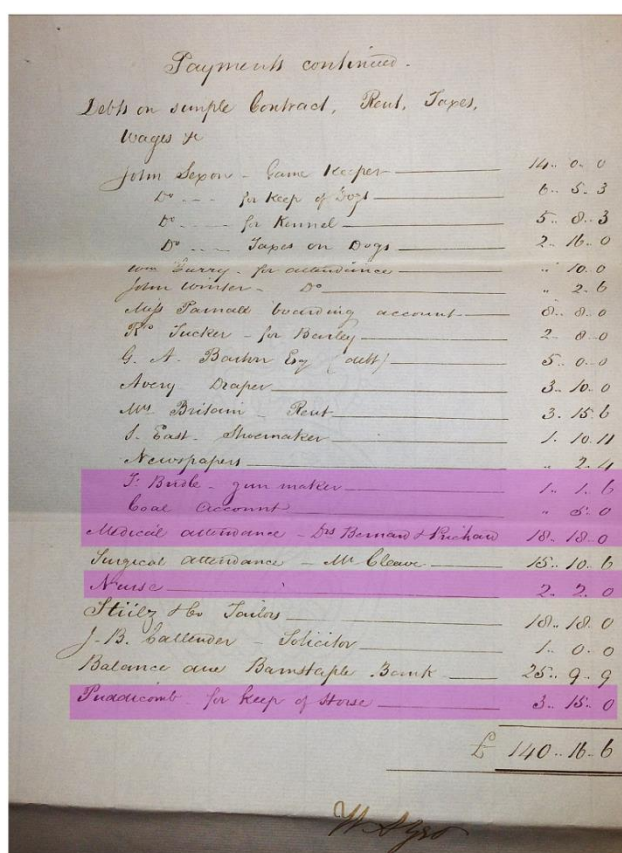 Payments continued.
Debts on simple Contract, Rent, Taxes,
Wages &c
John Sexon - Game Keeper 14.. 0.. 0
Do ... for keep of Dogs 6.. 5.. 3
Do ... for Kennel 5.. 8.. 3
Do .... Taxes on Dogs 2.. 16.. 0
Wm Furry - for attendance .. 10.. 0
John Winter - Do .. 2.. 6
Miss Parnall boarding account 8.. 8.. 0
Tucker - for Barley 2.. 8.. 0
G. A. Barton Esq (debt) 5.. 0.. 0
Avery Draper 3.. 10.. 0
Britain - Rent 3.. 15.. 6
East - Shoemaker 1.. 10.. 11
Newspapers .. 2.. 4
gun maker 1.. 1.. 6
Coal Account .. 5.. 0
Medical attendance - Drs Bernard & Prichard 18.. 18.. 0
Surgical attendance - Mr Cleave 15.. 10.. 6
Nurse 2.. 2.. 0
& Co Tailors 18.. 18.. 0
J. B. Callender - Solicitor 1.. 0.. 0
Balance due Barnstaple Bank 25.. 9.. 9
Puddicomb for keep of Horse 3.. 15.. 0
£ 140.. 16.. 6